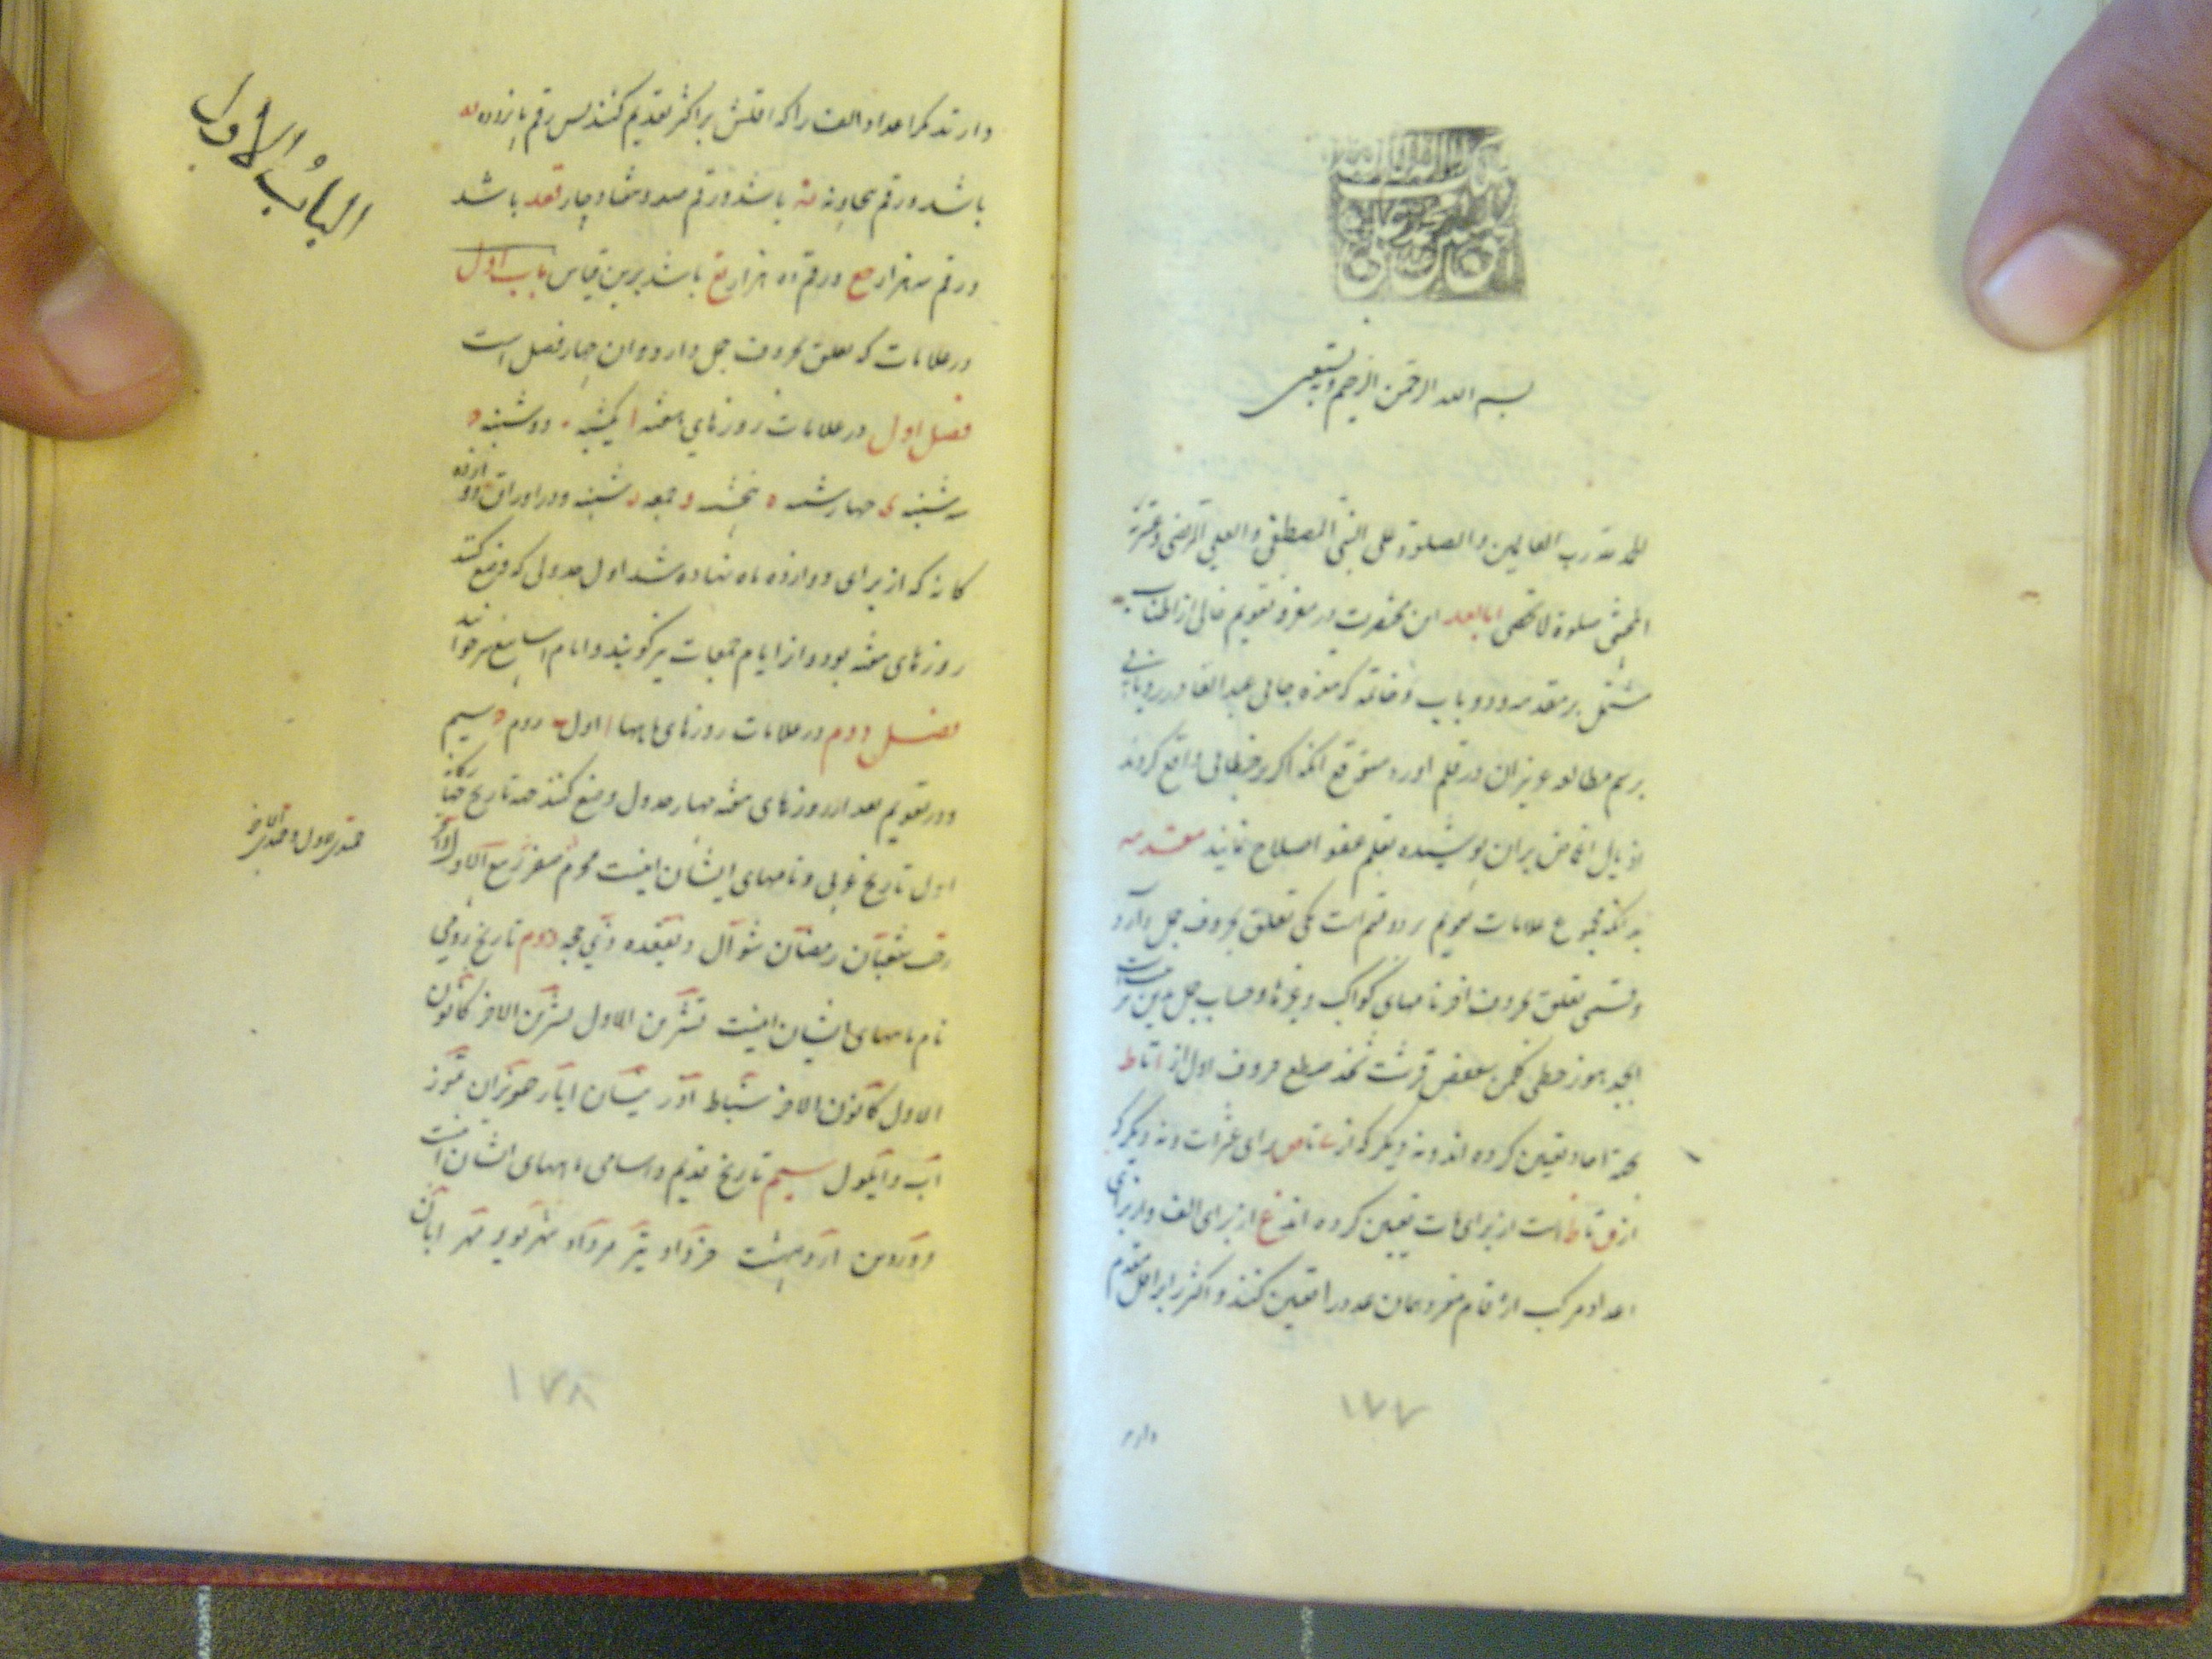 بسم الله الرحمن الرحیم وبه نستعین
الحمد لله رب العالمین والصلوة علی النبی المصطفی والعلی المرتضی وعترته
صلوة لا تحصی اما بعد این مختصریست در معرفت تقویم خالی از اطناب
مشتمل بر مقدمه و دو باب و خاتمه که عبد القادر رویانی
برسم مطالعه عزیزان در قلم اورد متوقع انکه اکر بر خطائی واقع کردند
ذیل اغماض بران پوشیده بقلم عفو اصلاح نمایند مقدمه
بدانکه مجموع علامات تقویم بر دو قسم است یکی تعلق بحروف جمل دارد
وقسمی تعلق بحروف اخر نامهای کواکب وبرجها وحساب جمل مبنی است بر
ابجد هوز حطی کلمن سعفص قرشت ثخذ ضظغ حروف اول از ا تا ط
بجهة احاد تعیین کرده اند ونه دیکر که از ی تا ص برای عشرات ونه دیکر که
از ق تا ظ است از برای مات تعیین کرده اند غ از برای الف واز برای
اعداد مرکب ارقام مفرد همان عدد را تعیین کنند و اکثر را بر اقل مقدم
۱۷۷
دارند
دارند مکر اعداد الف را که اقلش بر اکثر تقدیم کنند پس رقم پانزده یه
باشد ورقم پنجاه ونه نط باشد ورقم صد وهفتاد وچار قعد باشد
ورقم سه هزار جغ ورقم ده هزار یغ باشد برین قیاس باب اول
در علامات که تعلق بحروف جمل دارد وان چهار فصل است
فصل اول در علامات روزهای هفته ا یکشنبه ب دوشنبه ج
سه شنبه د چهارشنبه ه پنجشنبه و جمعه ز شنبه ودر اوراق دوازده
کانه که از برای دوازده ماه نهاده شد اول جدولی که وضع کنند
روزهای هفته بود واز ایام جمعات نیز کویند وایام اسابیع نیز خوانند
فصل دوم در علامات روزهای ماهها ا اول ب دوم ج سیم
ودر تقویم بعد از روزهای هفته چهار جدول وضع کنند جهة تاریخ چهارکانه
اول تاریخ عربی ونامهای ایشان اینست محرم صفر ربیع الاول
رجب شعبان رمضان شوال ذیقعده ذی حجه دوم تاریخ رومی
نام ماههای ایشان اینست تشرین الاول تشرین الاخر کانون
الاول کانون الاخر شباط آذر نیسان ایار حزیران تموز
آب وایلول سیم تاریخ قدیم واسامی ماههای ایشان اینست
فروردین اردیبهشت خرداد تیر مرداد شهریور مهر ابان
الباب الاول
جمیدی الاول وجمیدی الاخر
۱۷۸